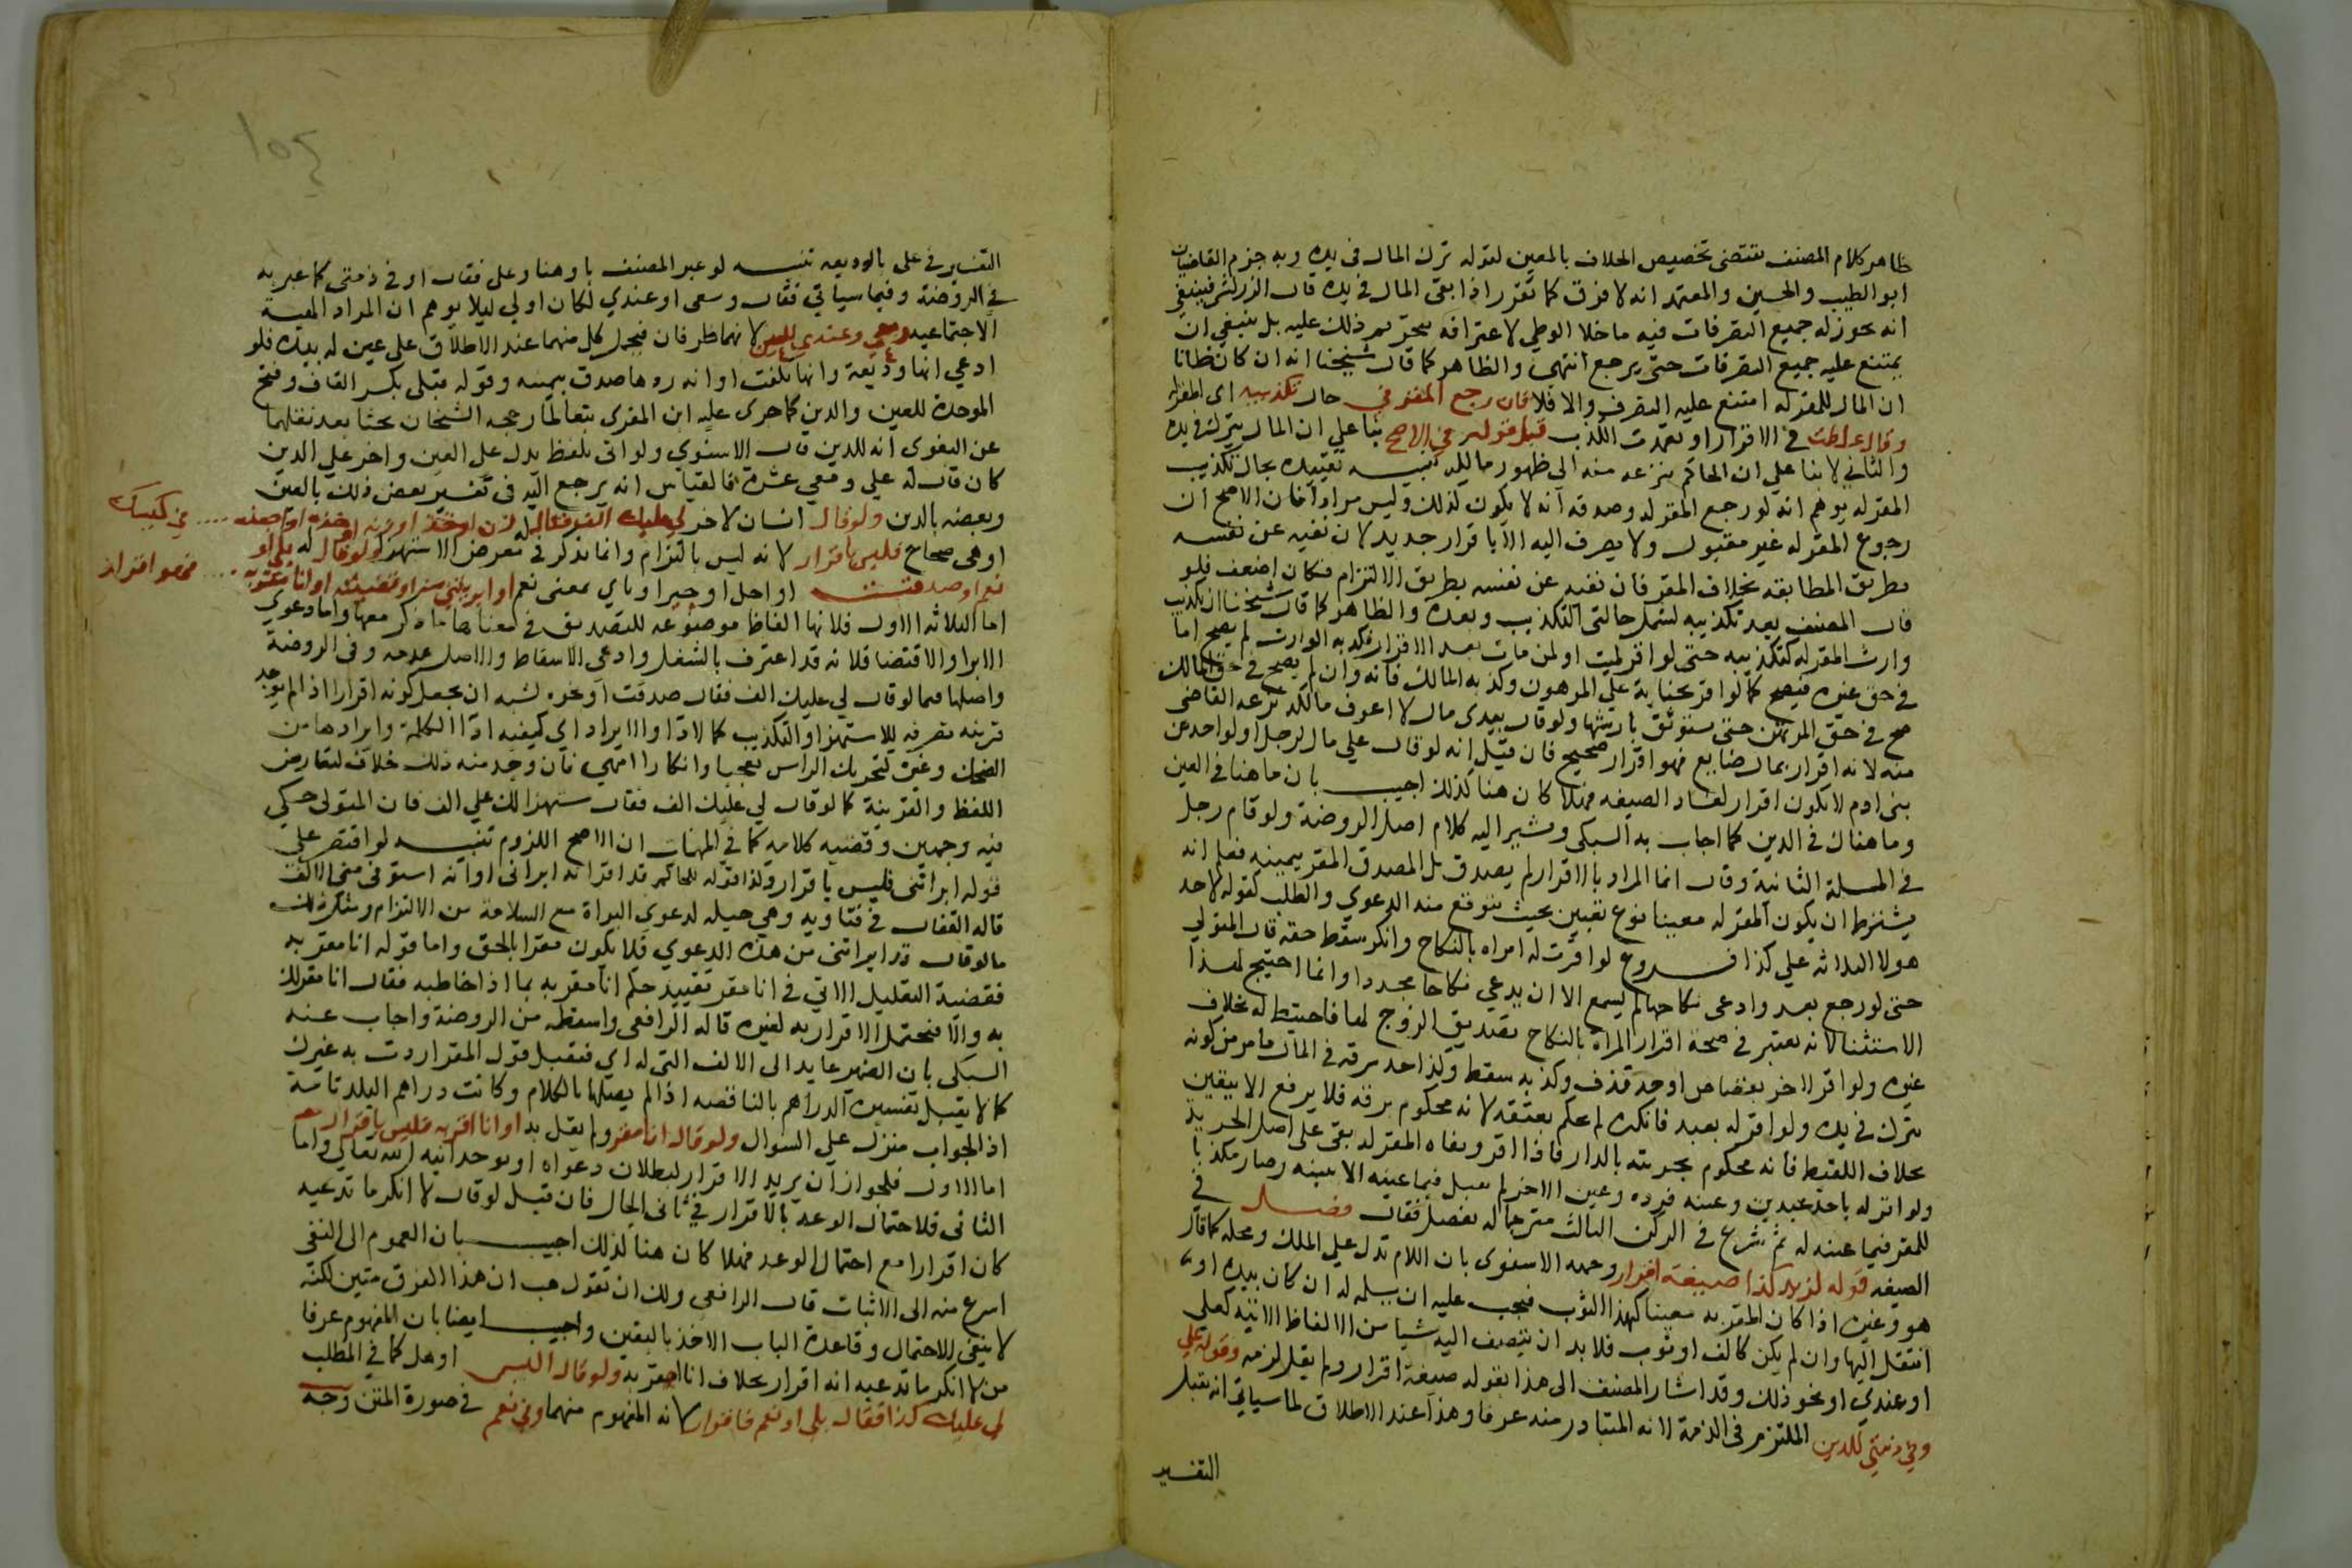 ظاهر كلام المصنف يقتضى تخصيص الخلاف بالمعين لقوله ترك المال فى يده وبه جزم القاضيان
ابو الطيب والحسين والمعتمد انه لا فرق كما تقرر اذا بقى المال فى يده قال الزركشى فينبغى
انه يجوز له جميع التصرفات فيه ما خلا الوطى لاعترافه بتحريم ذلك عليه بل ينبغي ان
يمتنع عليه جميع التصرفات حتى يرجع انتهى والظاهر كما قال شيخنا انه ان كان ظانا
ان المال للمقر له امتنع عليه التصرف والا فلا فان رجع المقر في حال تكذيبه اى المقر له
وقال غلطت فى الاقرار او تعمدت الكذب قبل قوله في الاصح بنا علي ان المال يترك في يده
والثاني لا بنا علي ان الحاكم ينزعه منه الى ظهور مالكه تنبيه تقييده بحال تكذيب
المقر له يوهم انه لو رجع المقر له وصدقه انه لا يكون كذلك وليس مرادا فان الاصح ان
رجوع المقر له غير مقبول ولا يصرف اليه الا باقرار جديد لان نفيه عن نفسه
بطريق المطابقة بخلاف المقر فان نفيه عن نفسه بطريق الالتزام فكان اضعف فلو
قال المصنف بعد تكذيبه لشمل حالتى التكذيب وبعده والظاهر كما قال شيخنا ان تكذيب
وارث المقر له كتكذيبه حتى لو اقر لميت او لمن مات بعد الاقرار فكذبه الوارث لم يصح اما
فى حق غيره فيصح كما لو اقر بجناية علي المرهون وكذبه المالك فانه وان لم يصح في حق المالك
صح فى حق المرتهن حتى يستوثق بارشها ولو قال بيدى مال لا اعرف مالكه نزعه القاضى
منه لانه اقرار بمال ضايع فهو اقرار صحيح فان قيل انه لو قال علي مال لرجل او لواحد من
بنى ادم لا يكون اقرار لفساد الصيغه فهلا كان هنا كذلك اجيب بان ما هنا فى العين
وما هناك فى الدين كما اجاب به السبكى ويشير اليه كلام اصل الروضة ولو قام رجل
فى المسلة الثانية وقال انا المراد بالاقرار لم يصدق بل المصدق المقر بيمينه فعلم انه
يشترط ان يكون المقر له معينا نوع تعيين بحيث يتوقع منه الدعوي والطلب كقوله لاحد
هولا الثلاثه علي كذا فروع لو اقرت له امراه بالنكاح وانكر سقط حقه قال المتولي
حتى لو رجع بعد وادعى نكاحها لم يسمع الا ان يدعي نكاحا مجددا وانما احتيج لهذا
الاستثنا لانه يعتبر فى صحة اقرار المراة بالنكاح تصديق الزوج لها فاحتيط له بخلاف
غيره ولو اقر لاخر بقصاص او حد قذف وكذبه سقط وكذا حد سرقه فى المال ما مر من كونه
يترك فى يده ولو اقر له بعبد فانكره لم يحكم بعتقه لانه محكوم برقه فلا يرفع الا بيقين
بخلاف اللقيط فانه محكوم بحريته بالدار فاذا اقر ونفاه المقر له بقى على اصل الحرية
ولو اقر له باحد عبدين وعينه فرده وعين الاخر لم يقبل فيما عينه الا ببينه وصار مكذبا
للمقر فيما عينه له ثم شرع فى الركن الثالث مترجما له بفصل فقال فصل فى
الصيغه قوله لزيد كذا صيغة اقرار وجهه الاسنوى بان اللام تدل علي الملك ومحله كما قال
هو وغيره اذا كان المقر به معينا كهذا الثوب فيجب عليه ان يسلمه له ان كان بيده او
انتقل اليها وان لم يكن كالف او ثوب فلا بد ان يضيف اليه شيا من الالفاظ الاتيه كعلى
او عندي او نحو ذلك وقد اشار المصنف الى هذا بقوله صيغة اقرار ولم يقل لزمه وقوله علي
وفي ذمتي للدين الملتزم فى الذمة لانه المتبادر منه عرفا وهذا عند الاطلاق لما سياتي انه يقبل
التفسير
التفسير فى علي بالوديعه تنبيه لو عبر المصنف باو هنا وعلى فقال او فى ذمتى كما عبر به
في الروضة وفيما سياتي فقال ومعى او عندي لكان اولي ليلا يوهم ان المراد المعية
الاجتماعيه ومعي وعندي للعين لانهما ظرفان فيحمل كل منهما عند الاطلاق على عين له بيده فلو
ادعي انها وديعة وانها تلفت او انه ردها صدق بيمينه وقوله قبلى بكسر القاف وفتح
الموحدة للعين والدين كما جرى عليه ابن المقرى تبعا لما رجحه الشيخان بحثا بعد نقلهما
عن البغوى انه للدين قال الاسنوي ولو اتى بلفظ يدل على العين واخر علي الدين
كان قال له علي ومعي عشرة فالقياس انه يرجع اليه فى تفسير بعض ذلك بالعين
وبعضه بالدين ولو قال انسان لاخر لي عليك الف فقال له زن او خذ او زنه او خذه او اختمه
.... في كيسك
او هى صحاح فليس باقرار لانه ليس بالتزام وانما يذكر فى معرض الاستهزا ولو قال له بلى او
نعم او صدقت او اجل او جير او اي بمعنى نعم او ابريتني منه او قضيته او انا مقر به
.... فهو اقرار
اما الثلاثه الاول فلانها الفاظ موضوعه للتصديق فى معناها ما ذكر معها واما دعوي
الابرا والاقتضا فلانه قد اعترف بالشغل وادعى الاسقاط والاصل عدمه وفى الروضة
واصلها فيما لو قال لي عليك الف فقال صدقت او نحوه يشبه ان يجعل كونه اقرارا اذا لم يوجد
قرينه تصرفه للاستهزا والتكذيب كالاداء والايراد اي كيفيه ادا الكلمة وايرادها من
الضحك وغيره كتحريك الراس تعجبا وانكارا انتهى فان وجد منه ذلك خلاف لتعارض
اللفظ والقرينة كما لو قال لي عليك الف فقال مستهزا لك علي الف فان المتولى حكي
فيه وجهين وقضيه كلامه كما في المهمات ان الاصح اللزوم تنبيه لو اقتصر علي
قوله ابراتنى فليس باقرار وكذا قوله للحاكم قد اقر انه ابرانى او انه استوفى منى الالف
قاله القفال فى فتاويه وهى حيله لدعوي البراة مع السلامة من الالتزام ومثل ذلك
ما لو قال قد ابراتنى من هذه الدعوي فلا يكون مقرا بالحق واما قوله انا مقر به
فقضية التعليل الاتي فى انا مقر تقييد حكم انا مقر به بما اذا خاطبه فقال انا مقر لك
به والا فيحتمل الاقرار به لغيره قاله الرافعي واسقطه من الروضة واجاب عنه
السبكى بان الضمير عايد الى الالف التى له اي فيقبل قول المقر اردت به غيرك
كما لا يقبل تفسيره الدراهم بالناقصه اذا لم يصلها بالكلام وكانت دراهم البلد تامة
اذ الجواب منزل علي السوال ولو قال انا مقر ولم يقل به او انا اقر به فليس باقرار
اما الاول فلجواز ان يريد الاقرار لبطلان دعواه او بوحدانيه الله تعالي واما
الثانى فلاحتمال الوعد بالاقرار فى ثانى الحال فان قيل لو قال لا انكر ما تدعيه
كان اقرارا مع احتمال الوعد فهلا كان هنا كذلك اجيب بان العموم الى النفى
اسرع منه الى الاثبات قال الرافعي ولك ان تقول هب ان هذا الفرق متين لكنه
لا ينفى الاحتمال وقاعدة الباب الاخذ باليقين واجيب ايضا بان المفهوم عرفا
من لا انكر ما تدعيه انه اقرار بخلاف انا اقر به ولو قال اليس او هل كما في المطلب
لي عليك كذا فقال بلى او نعم فاقرار لانه المفهوم منهما وفي نعم فى صورة المتن وجه